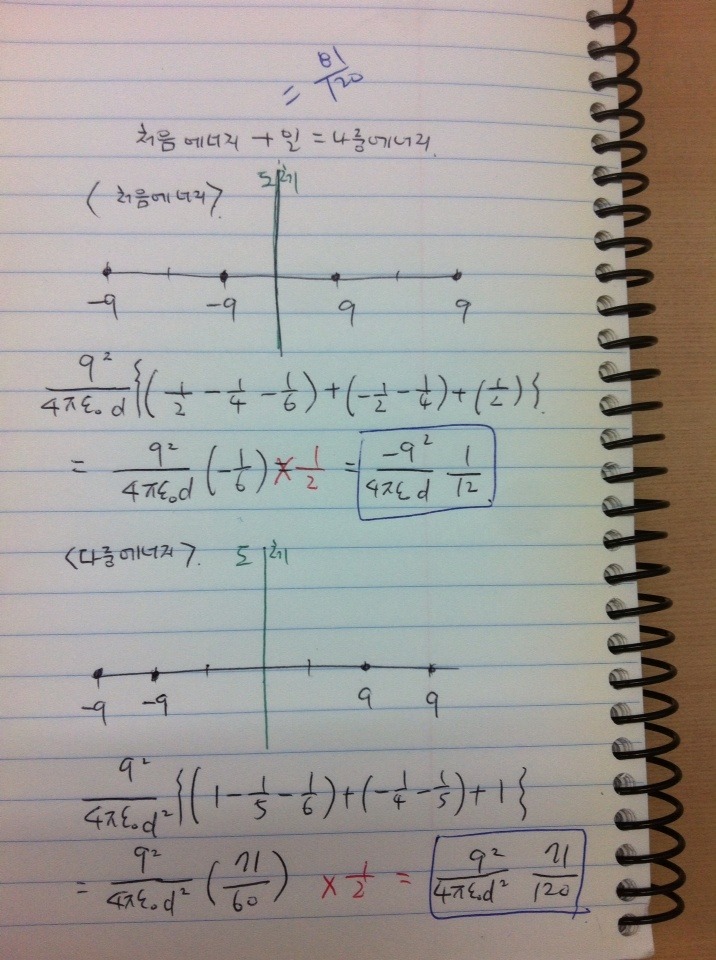 = 81/120
처음에너지 + 일 = 나중에너지.
<처음에너지>. 도체
-q -q q q
q²/4πε₀d {(1/2 - 1/4 - 1/6) + (-1/2 - 1/4) + (1/2)}.
= q²/4πε₀d (-1/6) × 1/2 = -q²/4πεd 1/12.
<나중에너지>. 도체
-q -q q q
q²/4πε₀d² {(1 - 1/5 - 1/6) + (-1/4 - 1/5) + 1}
= q²/4πε₀d² (71/60) × 1/2 = q²/4πε₀d² 71/120